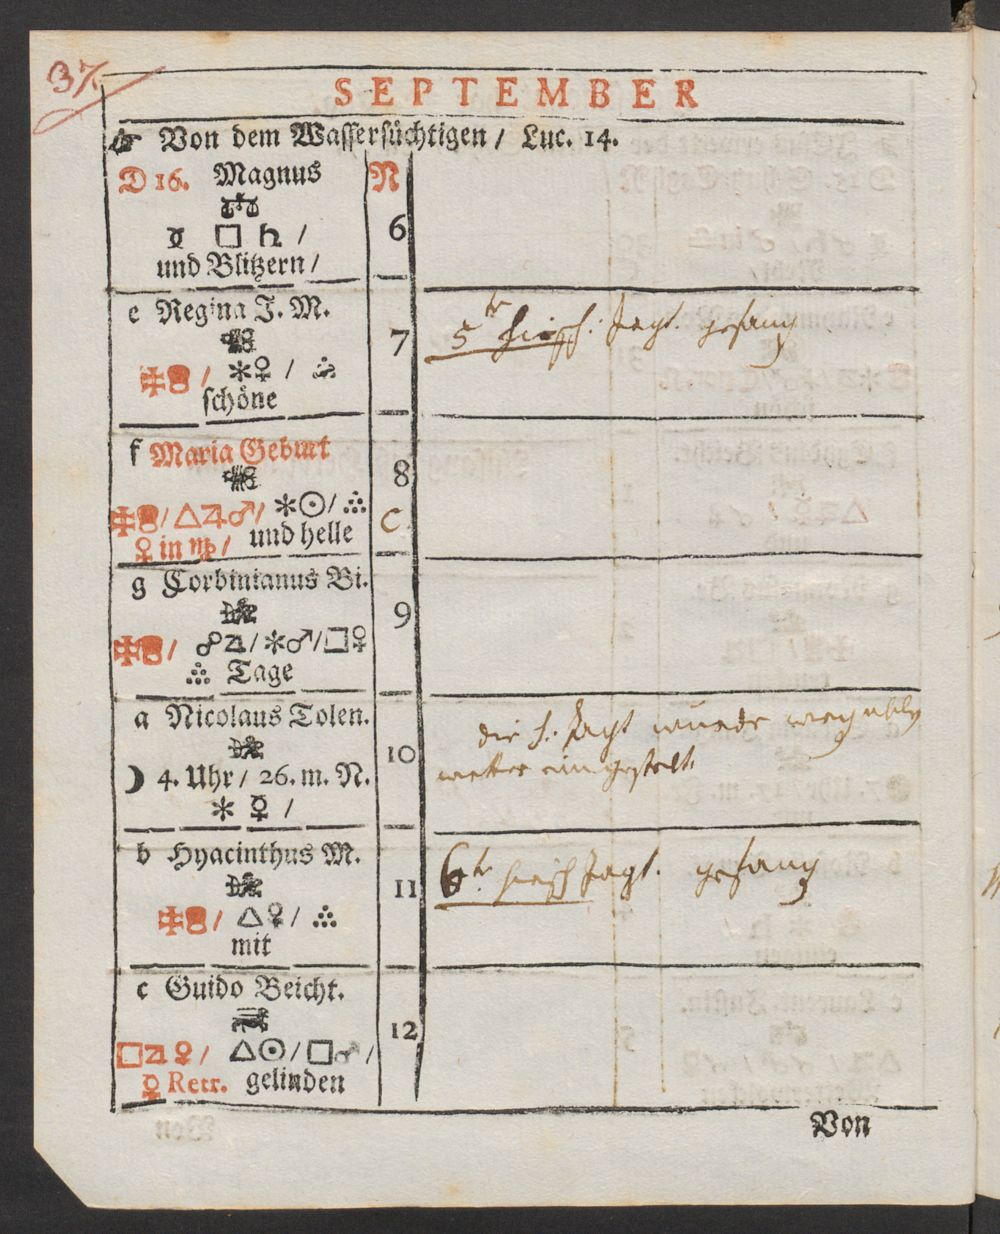 37.
SEPTEMBER
☞ Von dem Wassersüchtigen / Luc. 14.
D 16. Magnus N
☿ □ ♄ / 6
und Blitzern /
e Regina J. M.
5te hirsch: Jagt. gefang 7
/ ✱♀ / ஃ
schöne
f Maria Geburt
8
/ △♃♂ / ✱☉ / ஃ C
♀ in ♍ / und helle
g Corbinianus Bi.
9
/ ☍♃ / ✱♂ / □♀
ஃ Tage
a Nicolaus Tolen.
die h. Jagt wurde weg
10
☽ 4. Uhr / 26. m. N. wetter eingestelt.
✱ ☿ /
b Hyacinthus M.
6te hirsch Jagt. gefang
11
/ △♀ / ஃ
mit
c Guido Beicht.
12
□♃ ♀ / △☉ / □♂ /
☿ Retr. gelinden
Von